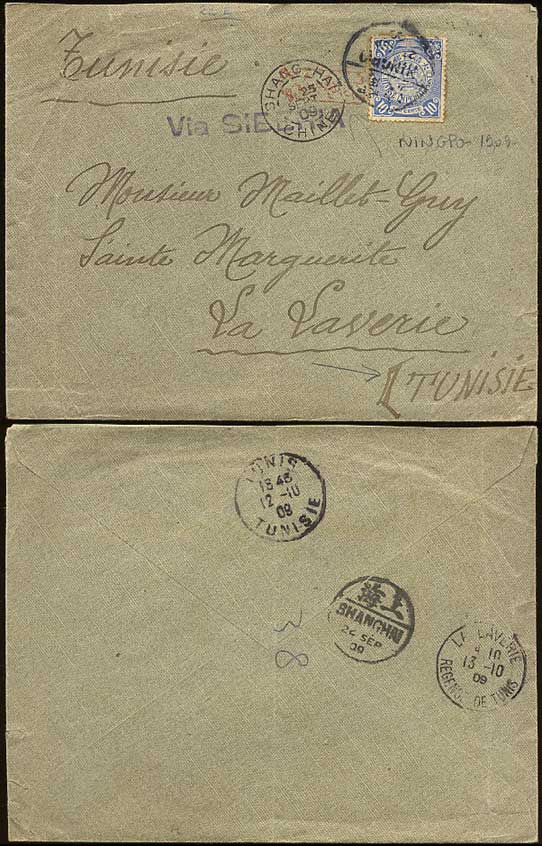 Tunisie
Via SIBERIA
SHANG-HAI
25
SEPT
09
CHINE
NINGPO
10
NINGPO- 1909-
Monsieur Maillet-Guy
Sainte Marguerite
La Laverie
[TUNISIE
TUNIS
12 -10
09
TUNISIE
上海
SHANGHAI
24 SEP
09
38
LA LAVERIE
13 -10
09
REGENCE DE TUNIS